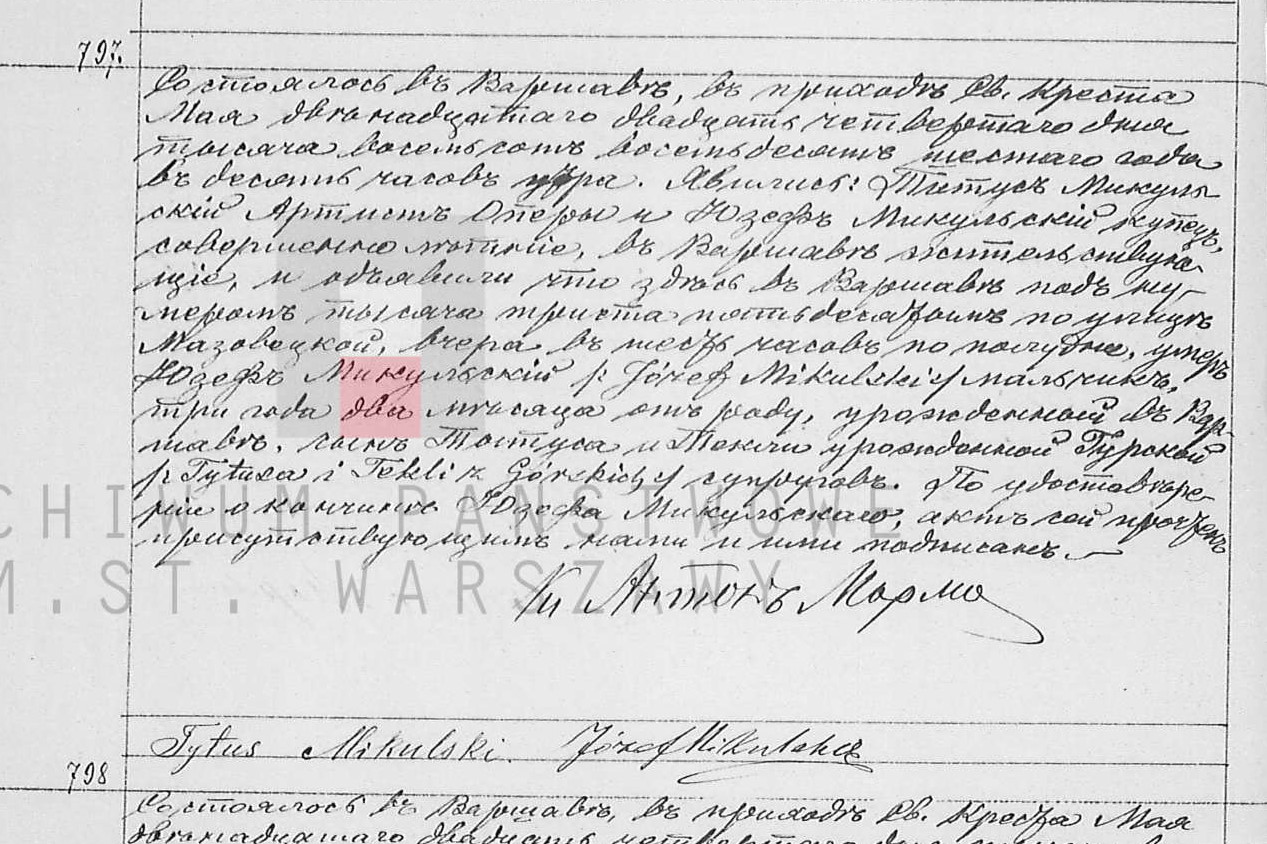 797.
Состоялось въ Варшавѣ, въ приходѣ Св. Креста
Мая двѣнадцатаго двадцать четвертаго дня
тысяча восемьсотъ восемьдесятъ шестаго года
въ десять часовъ утра. Явились: Титусъ Микуль-
скій Артистъ Оперы и Юзефъ Микульскій купецъ,
совершеннолѣтніе, въ Варшавѣ жительствую-
щіе, и объявили что здѣсь въ Варшавѣ подъ ну-
меромъ тысяча триста пятьдесятымъ по улицѣ
Мазовецкой, вчера въ шесть часовъ по полудни, умеръ
Юзефъ Микульскій /: Józef Mikulski :/ мальчикъ,
три года два мѣсяца отъ роду, урожденный въ Вар-
шавѣ, сынъ Титуса и Текли урожденной Гурской
/: Tytusa i Tekli z Górskich :/ супруговъ. По удостовѣре-
ніи о кончинѣ Юзефа Микульскаго, актъ сей прочтенъ
присутствующимъ нами и ими подписанъ.
ARCHIWUM PAŃSTWOWE
M.ST. WARSZAWY
Кс Антонъ
Tytus Mikulski. Józef Mikulski
798
Состоялось въ Варшавѣ, въ приходѣ Св. Креста Мая
двѣнадцатаго двадцать четвертаго дня